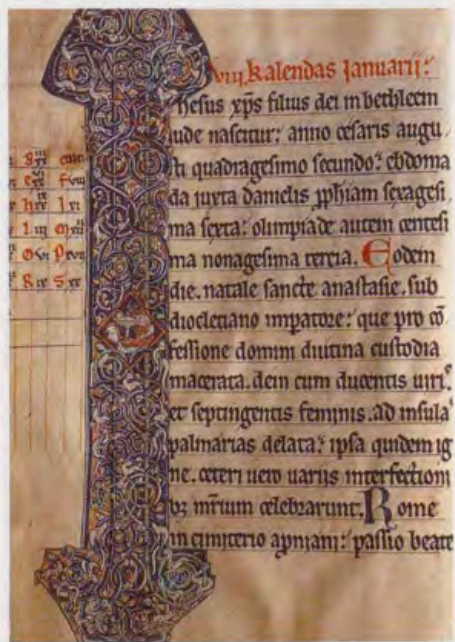 viij kalendas Ianuarij:
hesus xp̄s filius dei in bethleem
iude nascitur: anno cesaris augu
sti quadragesimo secundo: ebdoma
da juxta danielis ꝓphiam sexagesi
ma sexta: olimpiade autem centesi
ma nonagesima tercia. Eodem
die. natale sancte anastasie. sub
diocletiano impatore: que pro cō
fessione domini diutina custodia
macerata. dein cum ducentis uiri
et septingentis feminis. ad insula
palmarias delata: ipsa quidem ig
ne. ceteri uero uarijs interfection
bz mr̄ium celebrarunt. Rome
in cimiterio apniani: passio beate